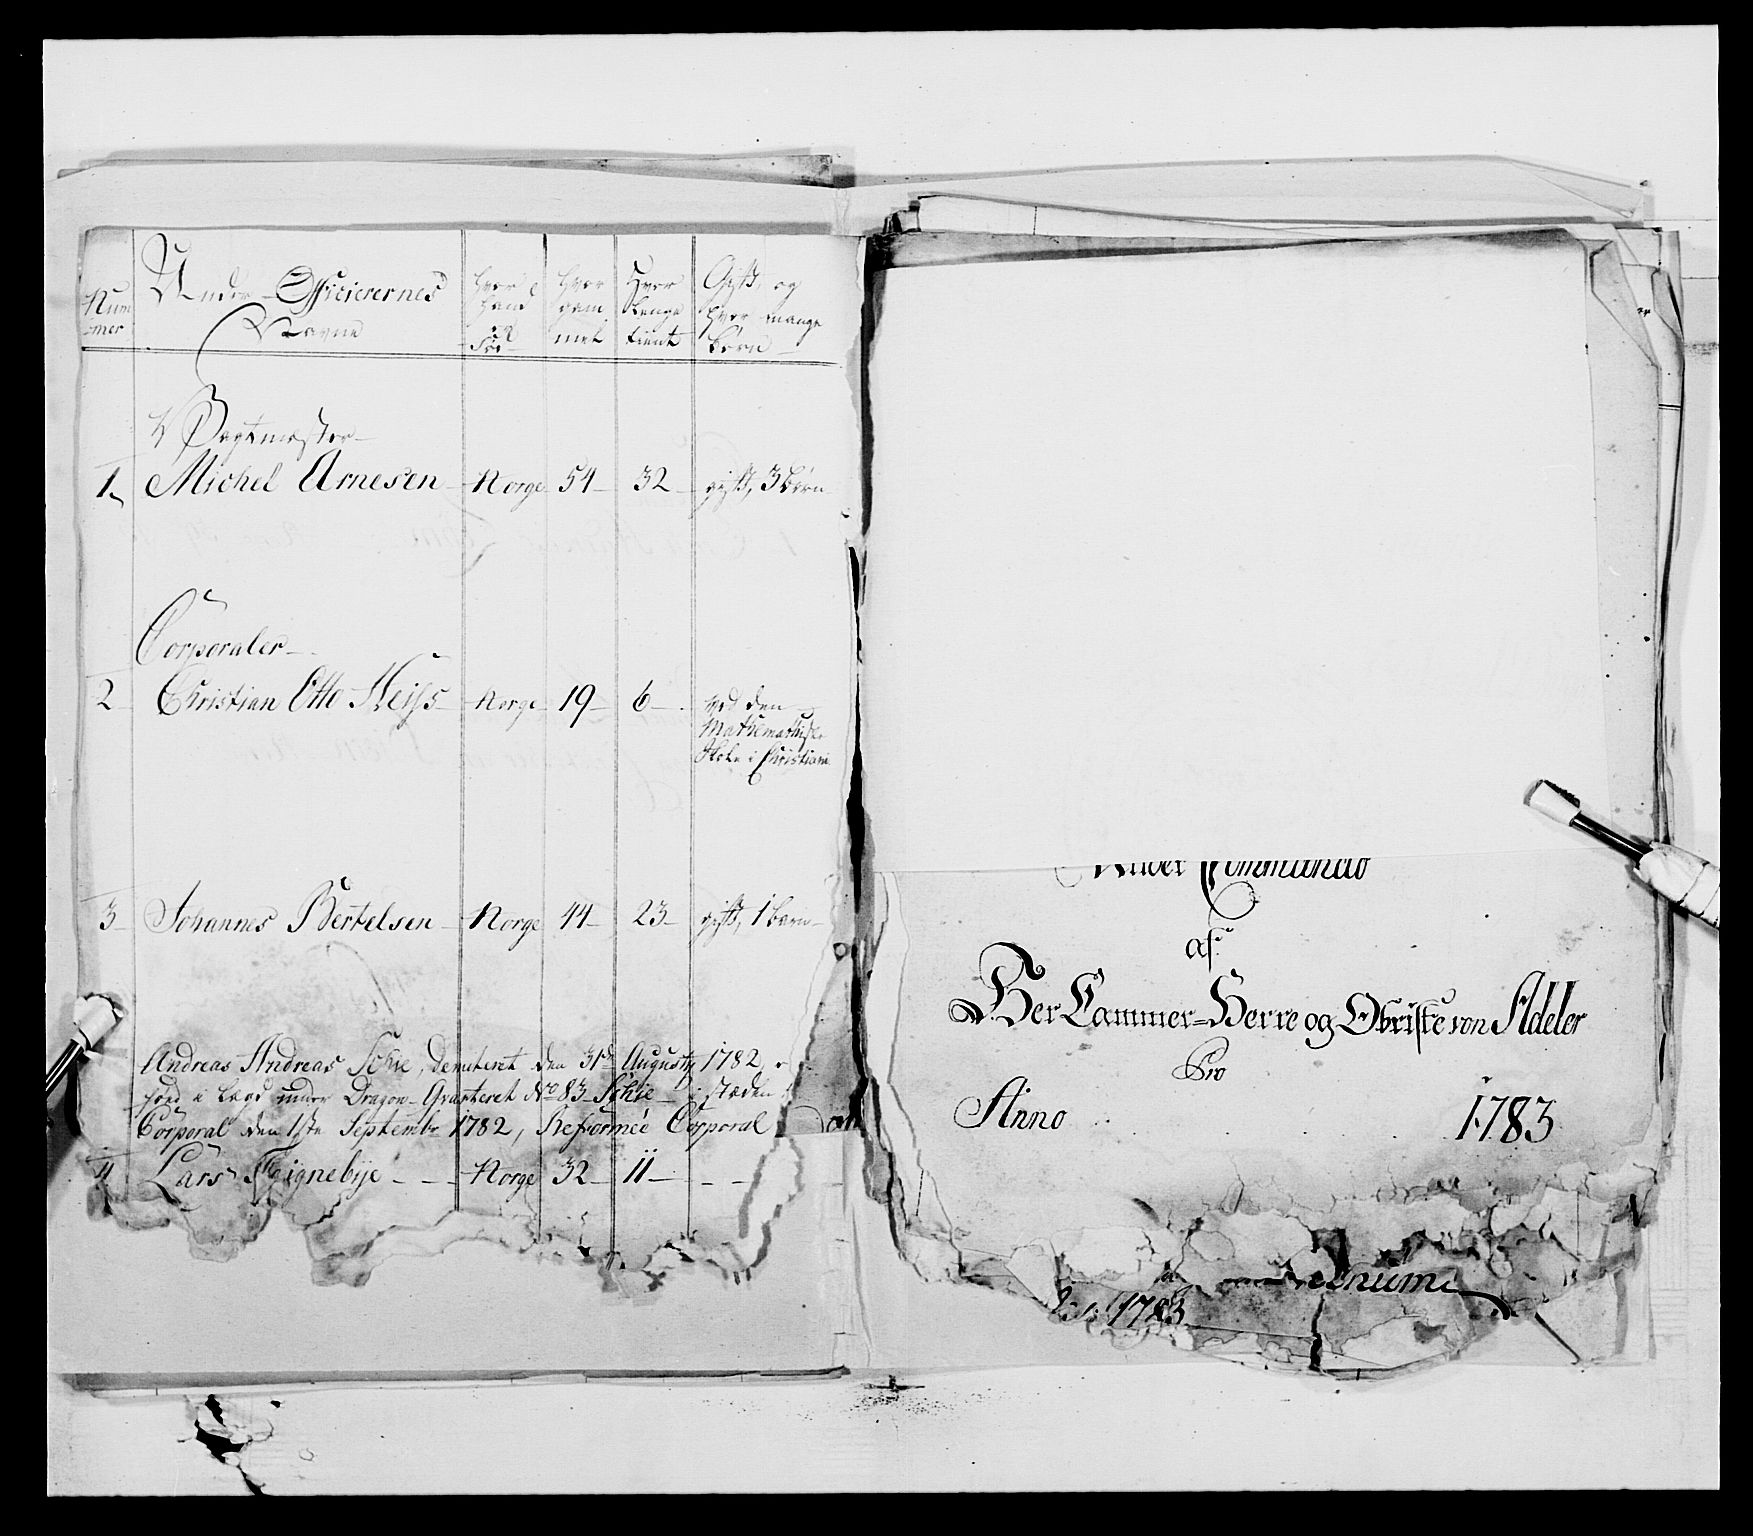 Num
mer
Under Officierernes
Navne
hvor
hand
er
Föd
hvor
gam
mel
Hvor
lenge
tient
Gift, og
hvor mange
börn
Vagtmester
1. Michel Arnesen Norge 54 32 gift, 3 börn
Corporaler
2 Christian Otto Heiss Norge 19 6 ved den
Mathematiske
Skole i Christiani
3 Johannes Bertelsen Norge 44 23 gift, 1 barn
Andreas Andreas Schie, demiteret den 31de Augusty 1782
föed i Lægd under Dragon-Qvarteret No 83 Schie i stæden
Corporal den 1ste Septembr 1782, Reformée Corporal
4 Lars Tgignebye Norge 32 11
Under Commando
af
Her Cammer-Herre og Obriste von Adeler
Pro
Anno 1783
1783